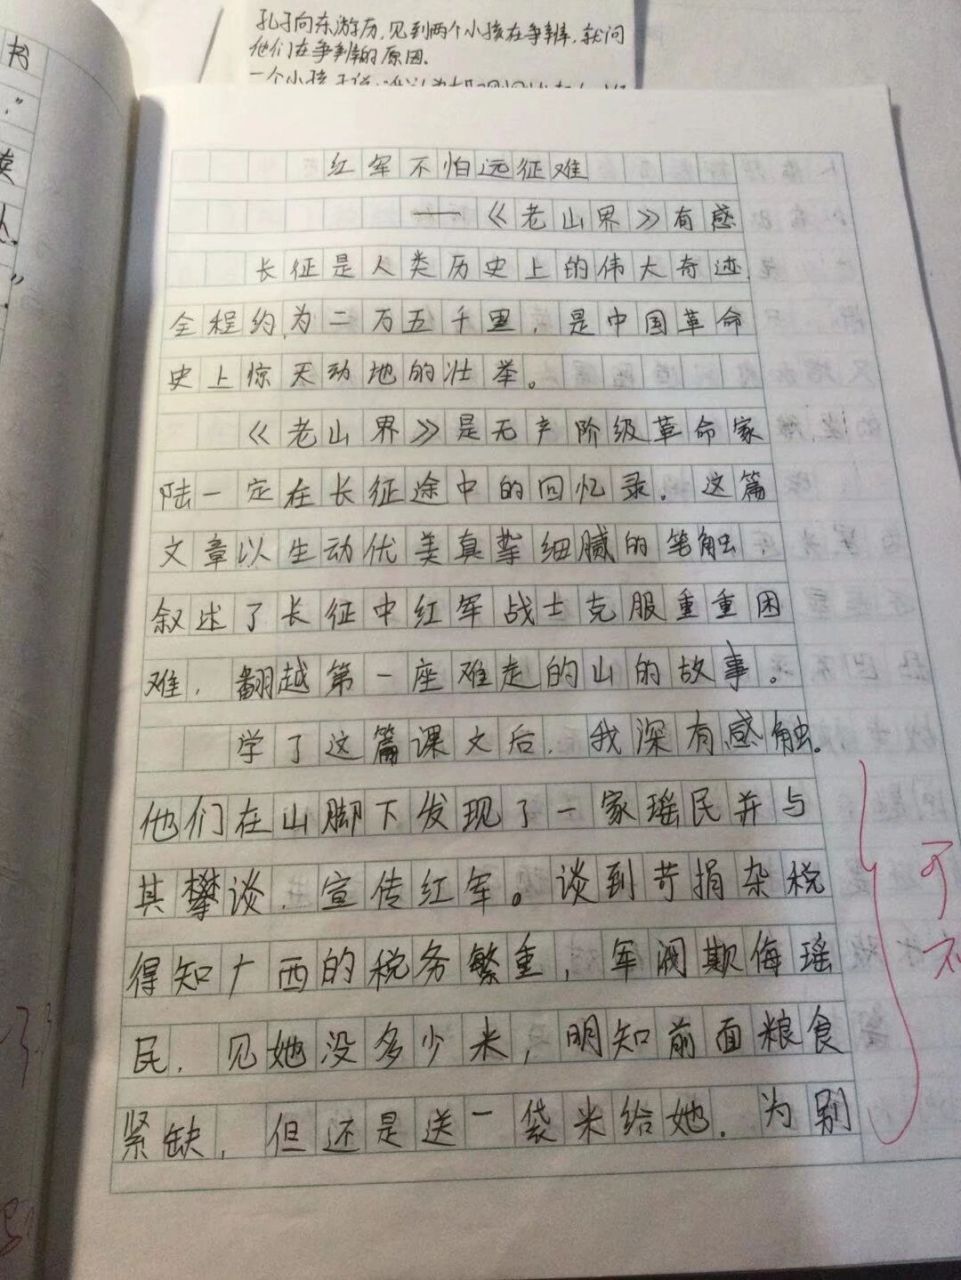 孔子向东游历,见到两个小孩在争辨,就问
他们在争辨的原因.
一个小孩子说:
红军不怕远征难
——《老山界》有感
长征是人类历史上的伟大奇迹
全程约为二万五千里,是中国革命
史上惊天动地的壮举。
《老山界》是无产阶级革命家
陆一定在长征途中的回忆录.这篇
文章以生动优美真挚细腻的笔触
叙述了长征中红军战士克服重重困
难,翻越第一座难走的山的故事。
学了这篇课文后,我深有感触.
他们在山脚下发现了一家瑶民并与
其攀谈,宣传红军。谈到苛捐杂税
得知广西的税务繁重,军阀欺侮瑶
民.见她没多少米,明知前面粮食
紧缺,但还是送一袋米给她.为别
可